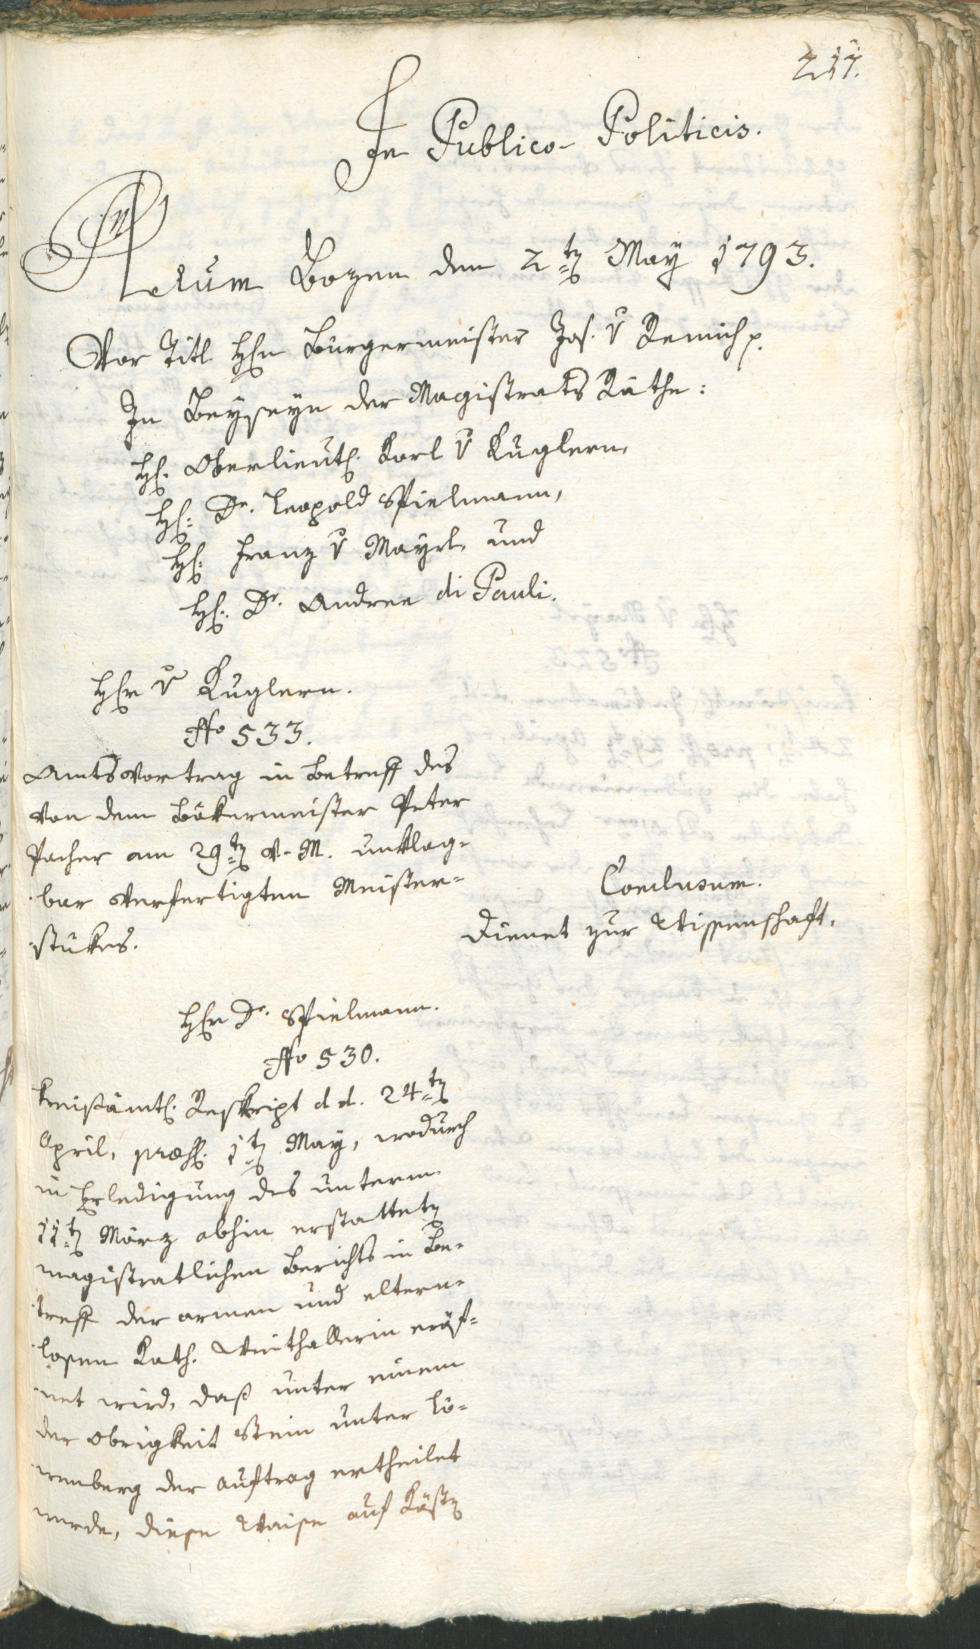 217.
In Publico-Politicis.
Actum Bozen den 2ten May 1793.
Vor Titl. Hhn Bürgermeister Jos. v Remich p.
In Beyseyn der Magistrats Räthe:
Hh. Oberlieut. Karl v Kuglern,
Hh: Dr. Leopold Spielmann,
Hh: Franz v Mayrl, und
Hh: Dr. Andree di Pauli.
Hhn v Kuglern.
No 533.
Amtsvortrag in Betreff des
von dem Bökermeister Peter
Pacher am 29ten v. M. unklag-
bar verfertigten Meister-
stükes.
Conclusum.
Dienet zur Wissenschaft.
Hhn Dr. Spielmann.
No 530.
Kreisämtl. Reskript d. d. 24ten
April, præs. 1ten May, wodurch
in Erledigung des unterm
11ten März abhin erstatteten
magistratlichen Berichts in Be-
treff der armen und eltern-
losen Kath. Weithallerin eröf-
net wird, daß unter einem
der Obrigkeit Stein unter Lö-
wenberg der Auftrag ertheilet
werde, diese Waise auf Kösten